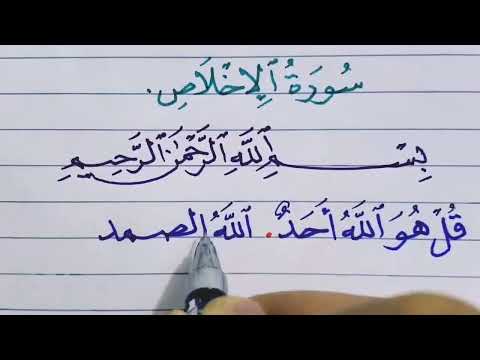 سُورَةُ ٱلِإخْلَاصِ.
بِسْمِ ٱللَّهِ ٱلرَّحْمَٰنِ ٱلرَّحِيمِ
قُلْ هُوَ ٱللَّهُ أَحَدٌ. ٱللَّهُ الصمد